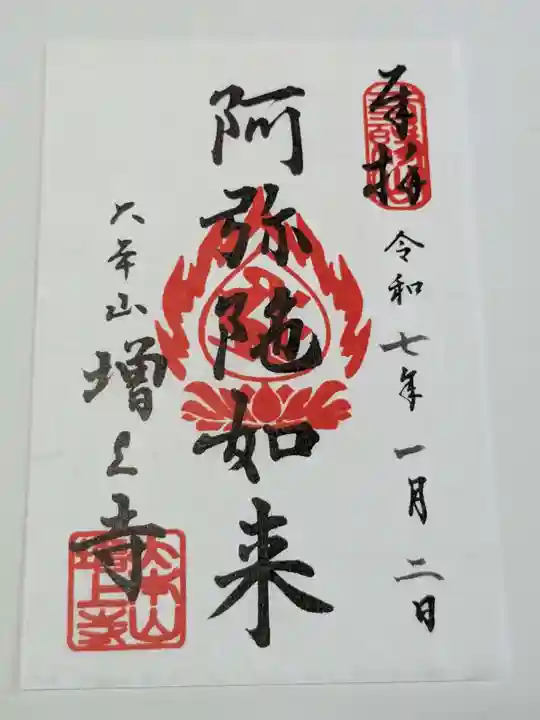 奉拝
令和七年一月二日
阿弥陀如来
大本山
増上寺
大本山
増上寺